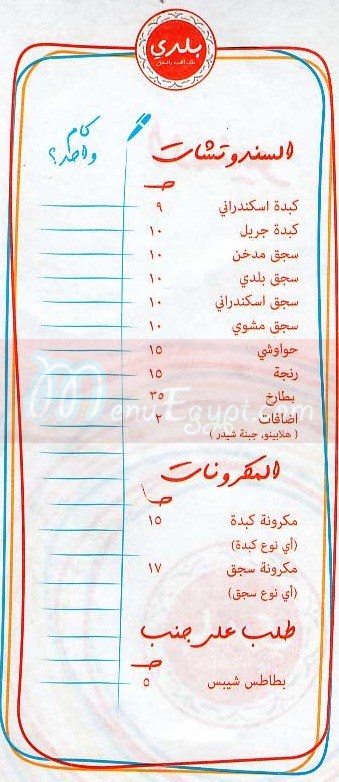 بلدي
كام
واحد؟
السندوتشات
جـ
كبدة اسكندراني ٩
كبدة جريل ١٠
سجق مدخن ١٠
سجق بلدي ١٠
سجق اسكندراني ١٠
سجق مشوي ١٠
حواوشي ١٥
رنجة ١٥
بطارخ ٣٥
اضافات ٢
( هلابينو، جبنة شيدر )
MenuEgypt.com
المكرونات
جـ
مكرونة كبدة ١٥
(أي نوع كبدة)
مكرونة سجق ١٧
(أي نوع سجق)
طلب على جنب
جـ
بطاطس شيبس ٥